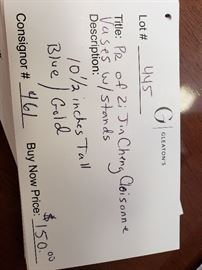 Lot # 445
G
GLEATON'S
Title: PR of Zi Jin Cheng Cloisonne
Vases w/stands
Description:
10 1/2 inches Tall
Blue/Gold
Consignor # 461 Buy Now Price: $150.00